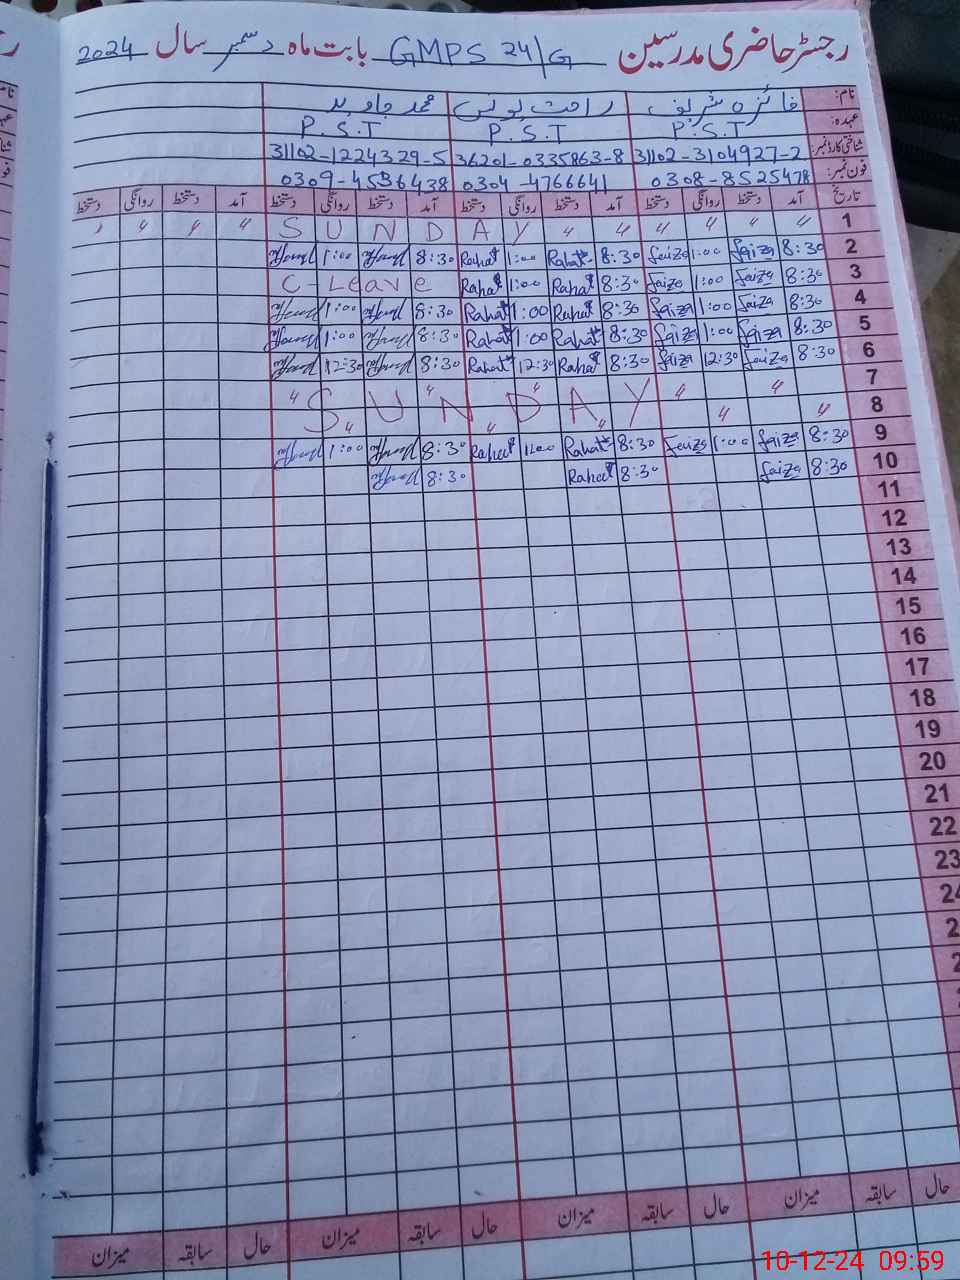 رجسٹر حاضری مدرسین GMPS 24/G بابت ماہ دسمبر سال 2024
نام: فائزہ شریف راحت یونس محمد جاوید
عہدہ: P.S.T P.S.T P.S.T
شناختی کارڈ نمبر: 31102-3104927-2 36201-0335863-8 31102-1224329-5
فون نمبر: 0308-8525478 0304-4766641 0309-4536438
تاریخ آمد دستخط روانگی دستخط آمد دستخط روانگی دستخط آمد دستخط روانگی دستخط آمد دستخط روانگی دستخط
1 SUNDAY " " " " " " " " " "
2 8:30 faiza 1:00 faiza 8:30 Rahat 1:00 Rahat 8:30 1:00
3 8:30 faiza 1:00 faiza 8:30 Rahat 1:00 Rahat C-Leave
4 8:30 faiza 1:00 faiza 8:30 Rahat 1:00 Rahat 8:30 1:00
5 8:30 faiza 1:00 faiza 8:30 Rahat 1:00 Rahat 8:30 1:00
6 8:30 faiza 12:30 faiza 8:30 Rahat 12:30 Rahat 8:30 12:30
7 " " " " "
8 SUNDAY " " " "
9 8:30 faiza 1:00 faiza 8:30 Rahat 1:00 Rahat 8:30 1:00
10 8:30 faiza 8:30 Rahat 8:30
11
12
13
14
15
16
17
18
19
20
21
22
23
24
حال سابقہ میزان حال سابقہ میزان حال سابقہ میزان حال سابقہ میزان
10-12-24 09:59